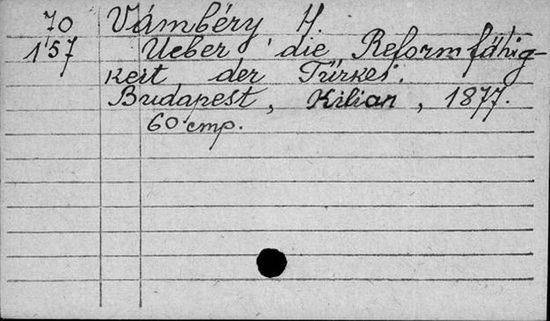 70 Vámbéry H
1'57 Ueber die Reformfähig-
keit der Türkei.
Budapest, Kilian, 1877.
60 cmp.